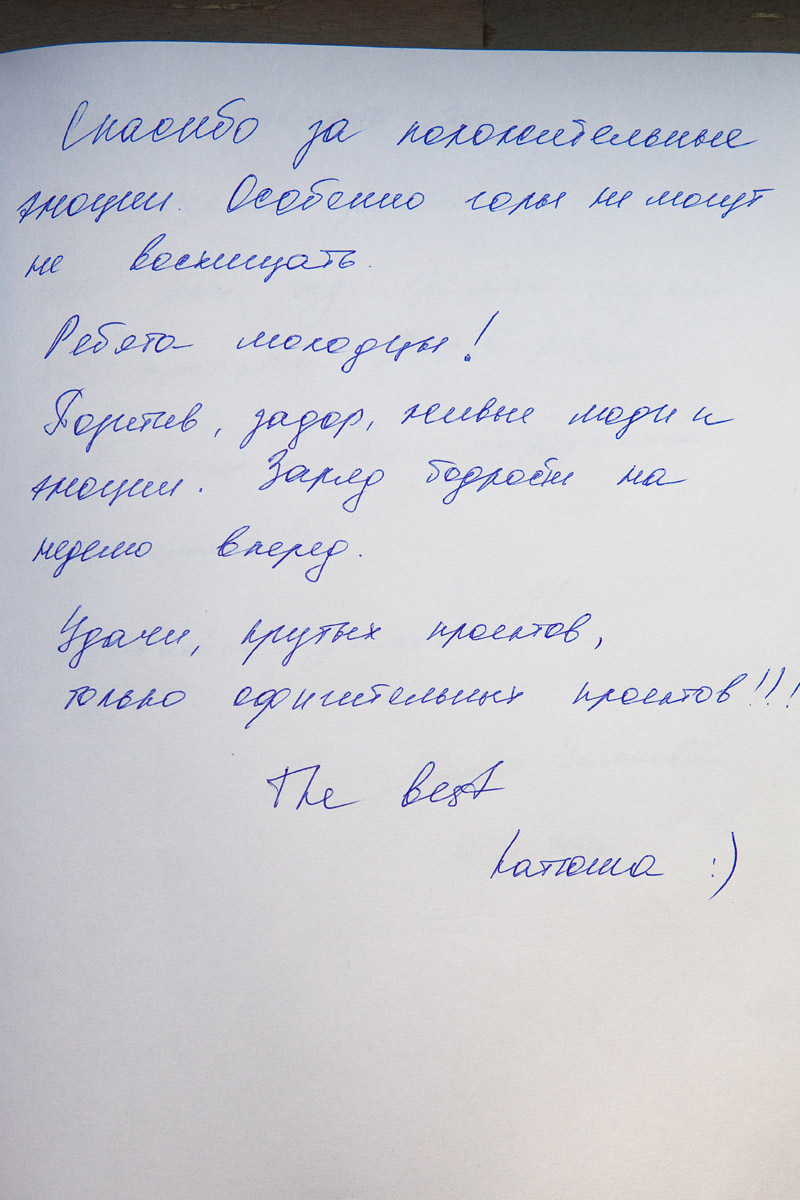 Спасибо за положительные
эмоции. Особенно горы не могут
не восхищать.
Ребята молодцы!
Позитив, задор, живые люди и
эмоции. Заряд бодрости на
неделю вперед.
Удачи, крутых проектов,
только офигительных проектов!!!
The best
Катюша :)